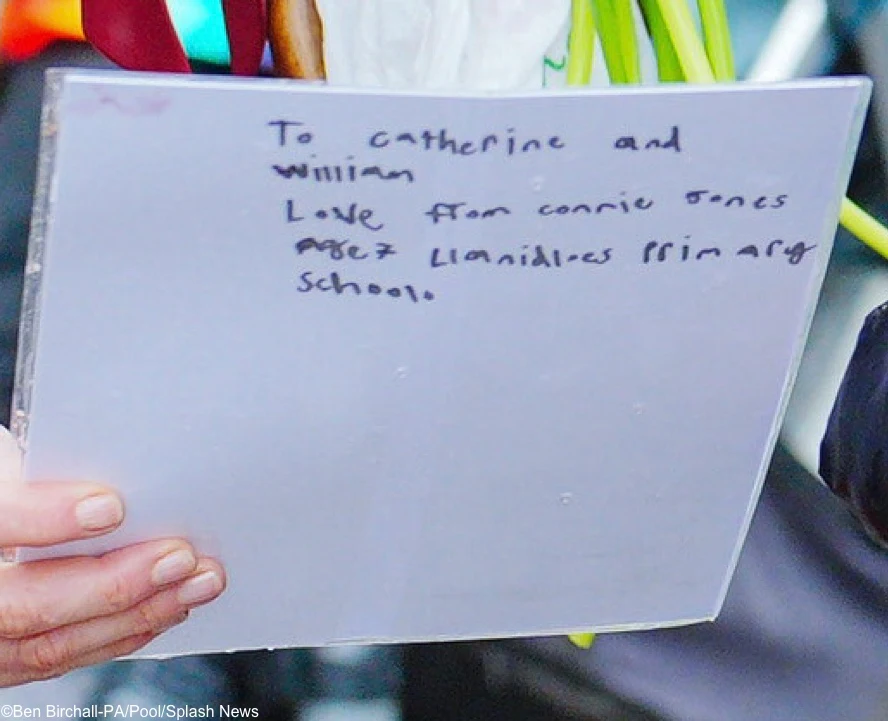 To catherine and
william
Love from connie Jones
Age 7 Llanidloes Primary
School.
©Ben Birchall-PA/Pool/Splash News